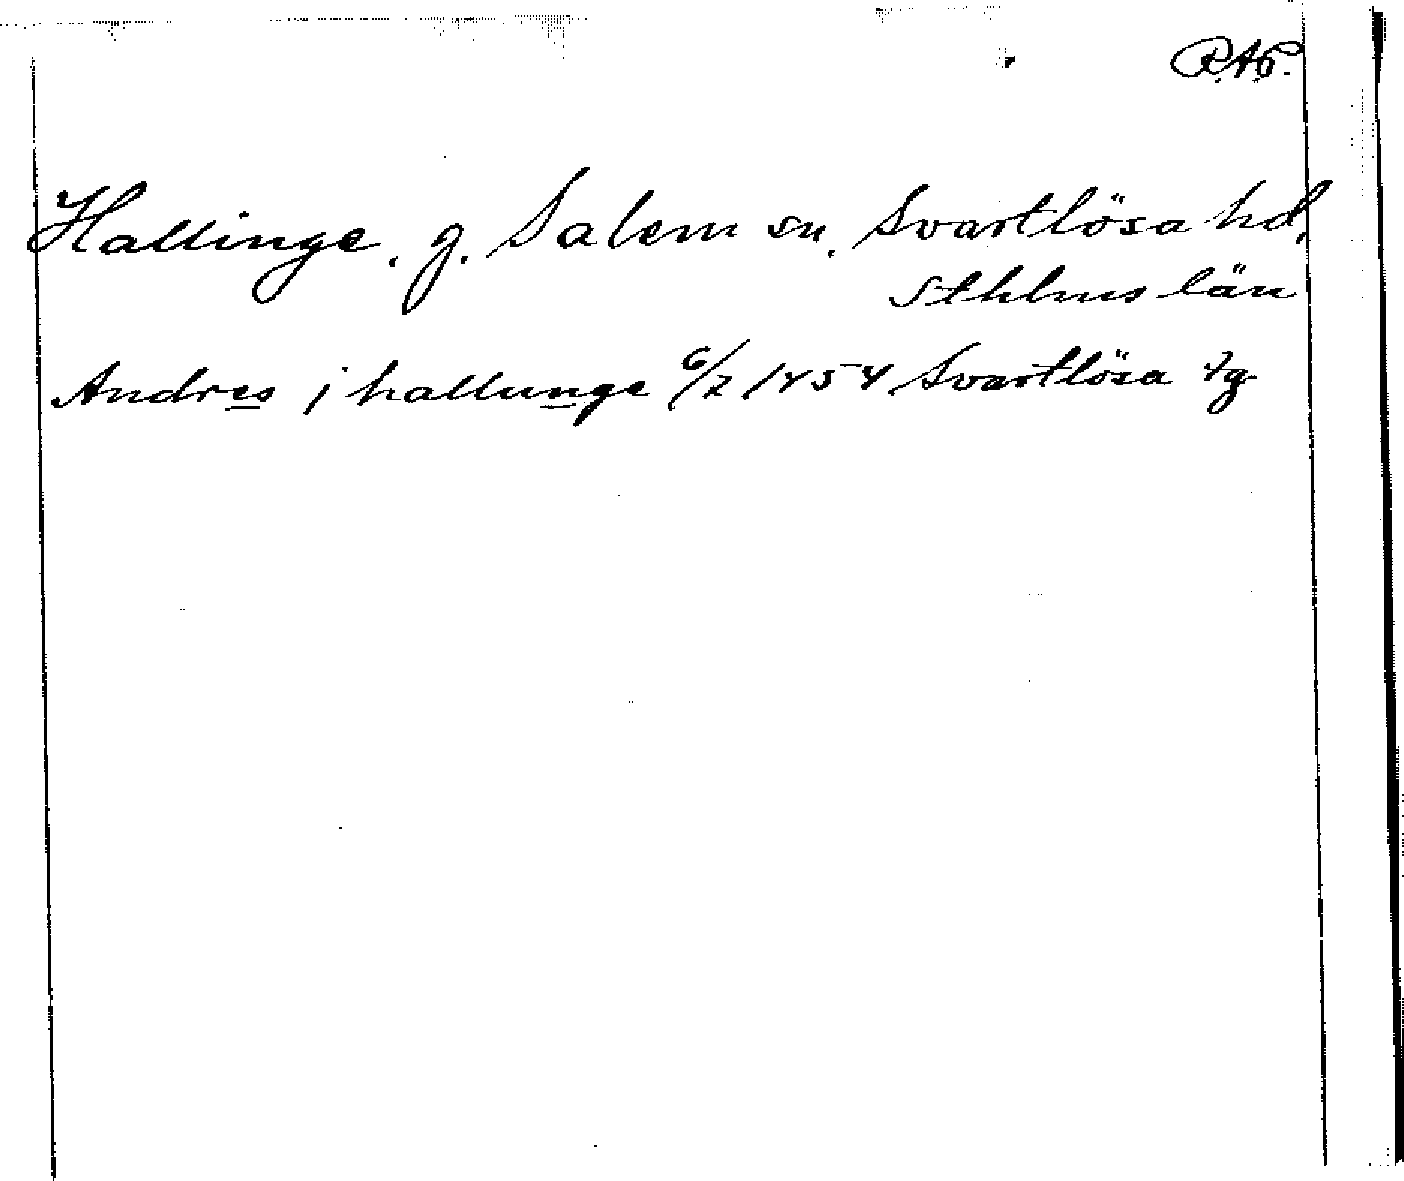 RAp.
Hallinge. g. Salem sn. Svartlösa hd.
Sthlms län
Andres j hallunge 6/2 1454 Svartlösa tg